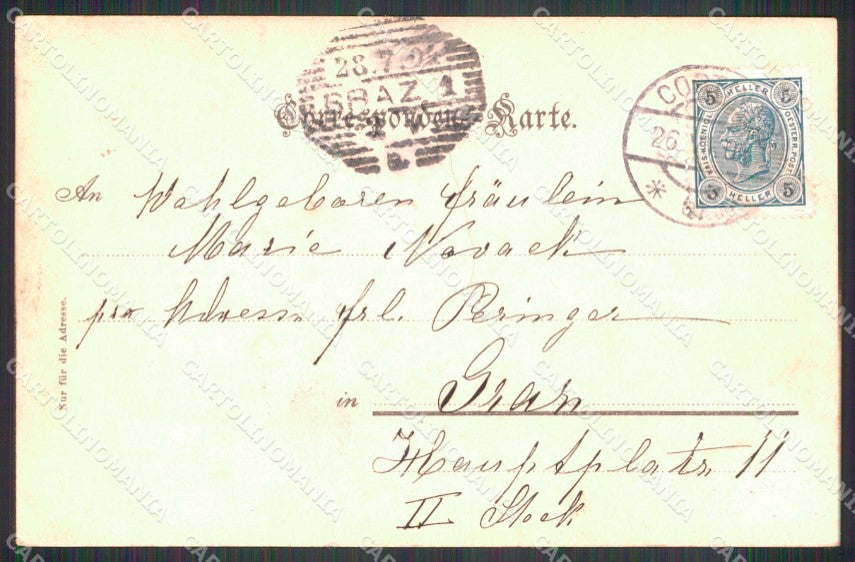 28.7.04
GRAZ 1
Correspondenz-Karte.
5 HELLER 5
KAIS. KOENIGL. OESTERR. POST
5 HELLER 5
26.
An Wohlgeboren fräulein
Marie Novack
pro Adresse frl. Peringer
in Graz
Hauptplatz 11
II Stock
Nur für die Adresse.
CARTOLINOMANIA